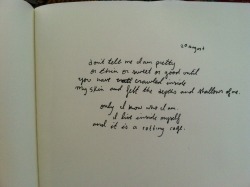 20 august
don't tell me I am pretty
or thin or sweet or good until
you have crawled inside
my skin and felt the depths and shallows of me.
only I know who I am
I live inside myself
and it is a rotting cage.